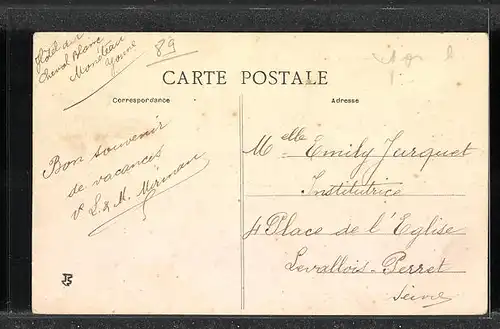 Hôtel du
Cheval Blanc
Monéteau
Yonne
89
CARTE POSTALE
Correspondance
Adresse
Bon souvenir
de vacances
L. & M.
Melle Emily Jurquet
Institutrice
4 Place de l'Eglise
Levallois-Perret
Seine